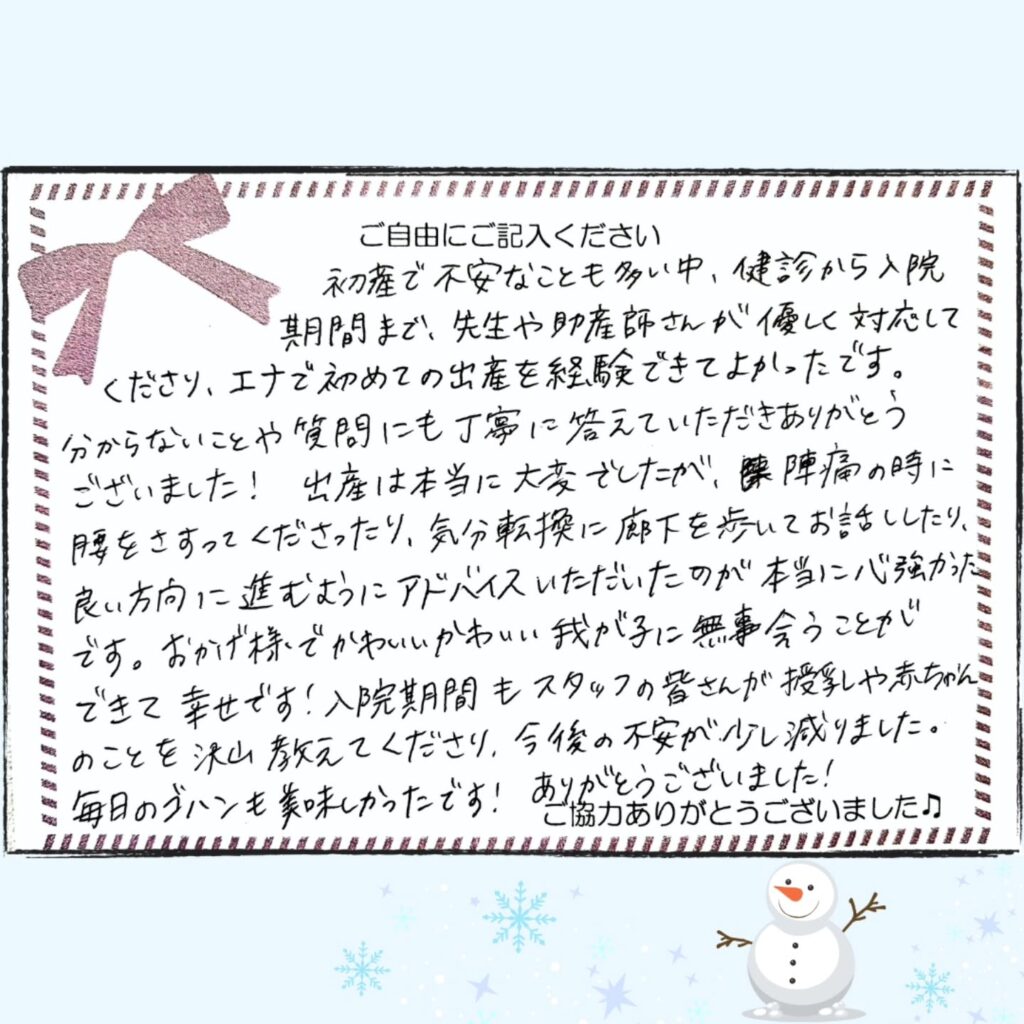 ご自由にご記入ください
初産で不安なことも多い中、健診から入院
期間まで、先生や助産師さんが優しく対応して
くださり、エナで初めての出産を経験できてよかったです。
分からないことや質問にも丁寧に答えていただきありがとう
ございました! 出産は本当に大変でしたが、陣痛の時に
腰をさすってくださったり、気分転換に廊下を歩いてお話ししたり、
良い方向に進むようにアドバイスいただいたのが本当に心強かった
です。おかげ様でかわいいかわいい我が子に無事会うことが
できて幸せです!入院期間もスタッフの皆さんが授乳や赤ちゃん
のことを沢山教えてくださり、今後の不安が少し減りました。
毎日のゴハンも美味しかったです! ありがとうございました!
ご協力ありがとうございました♫